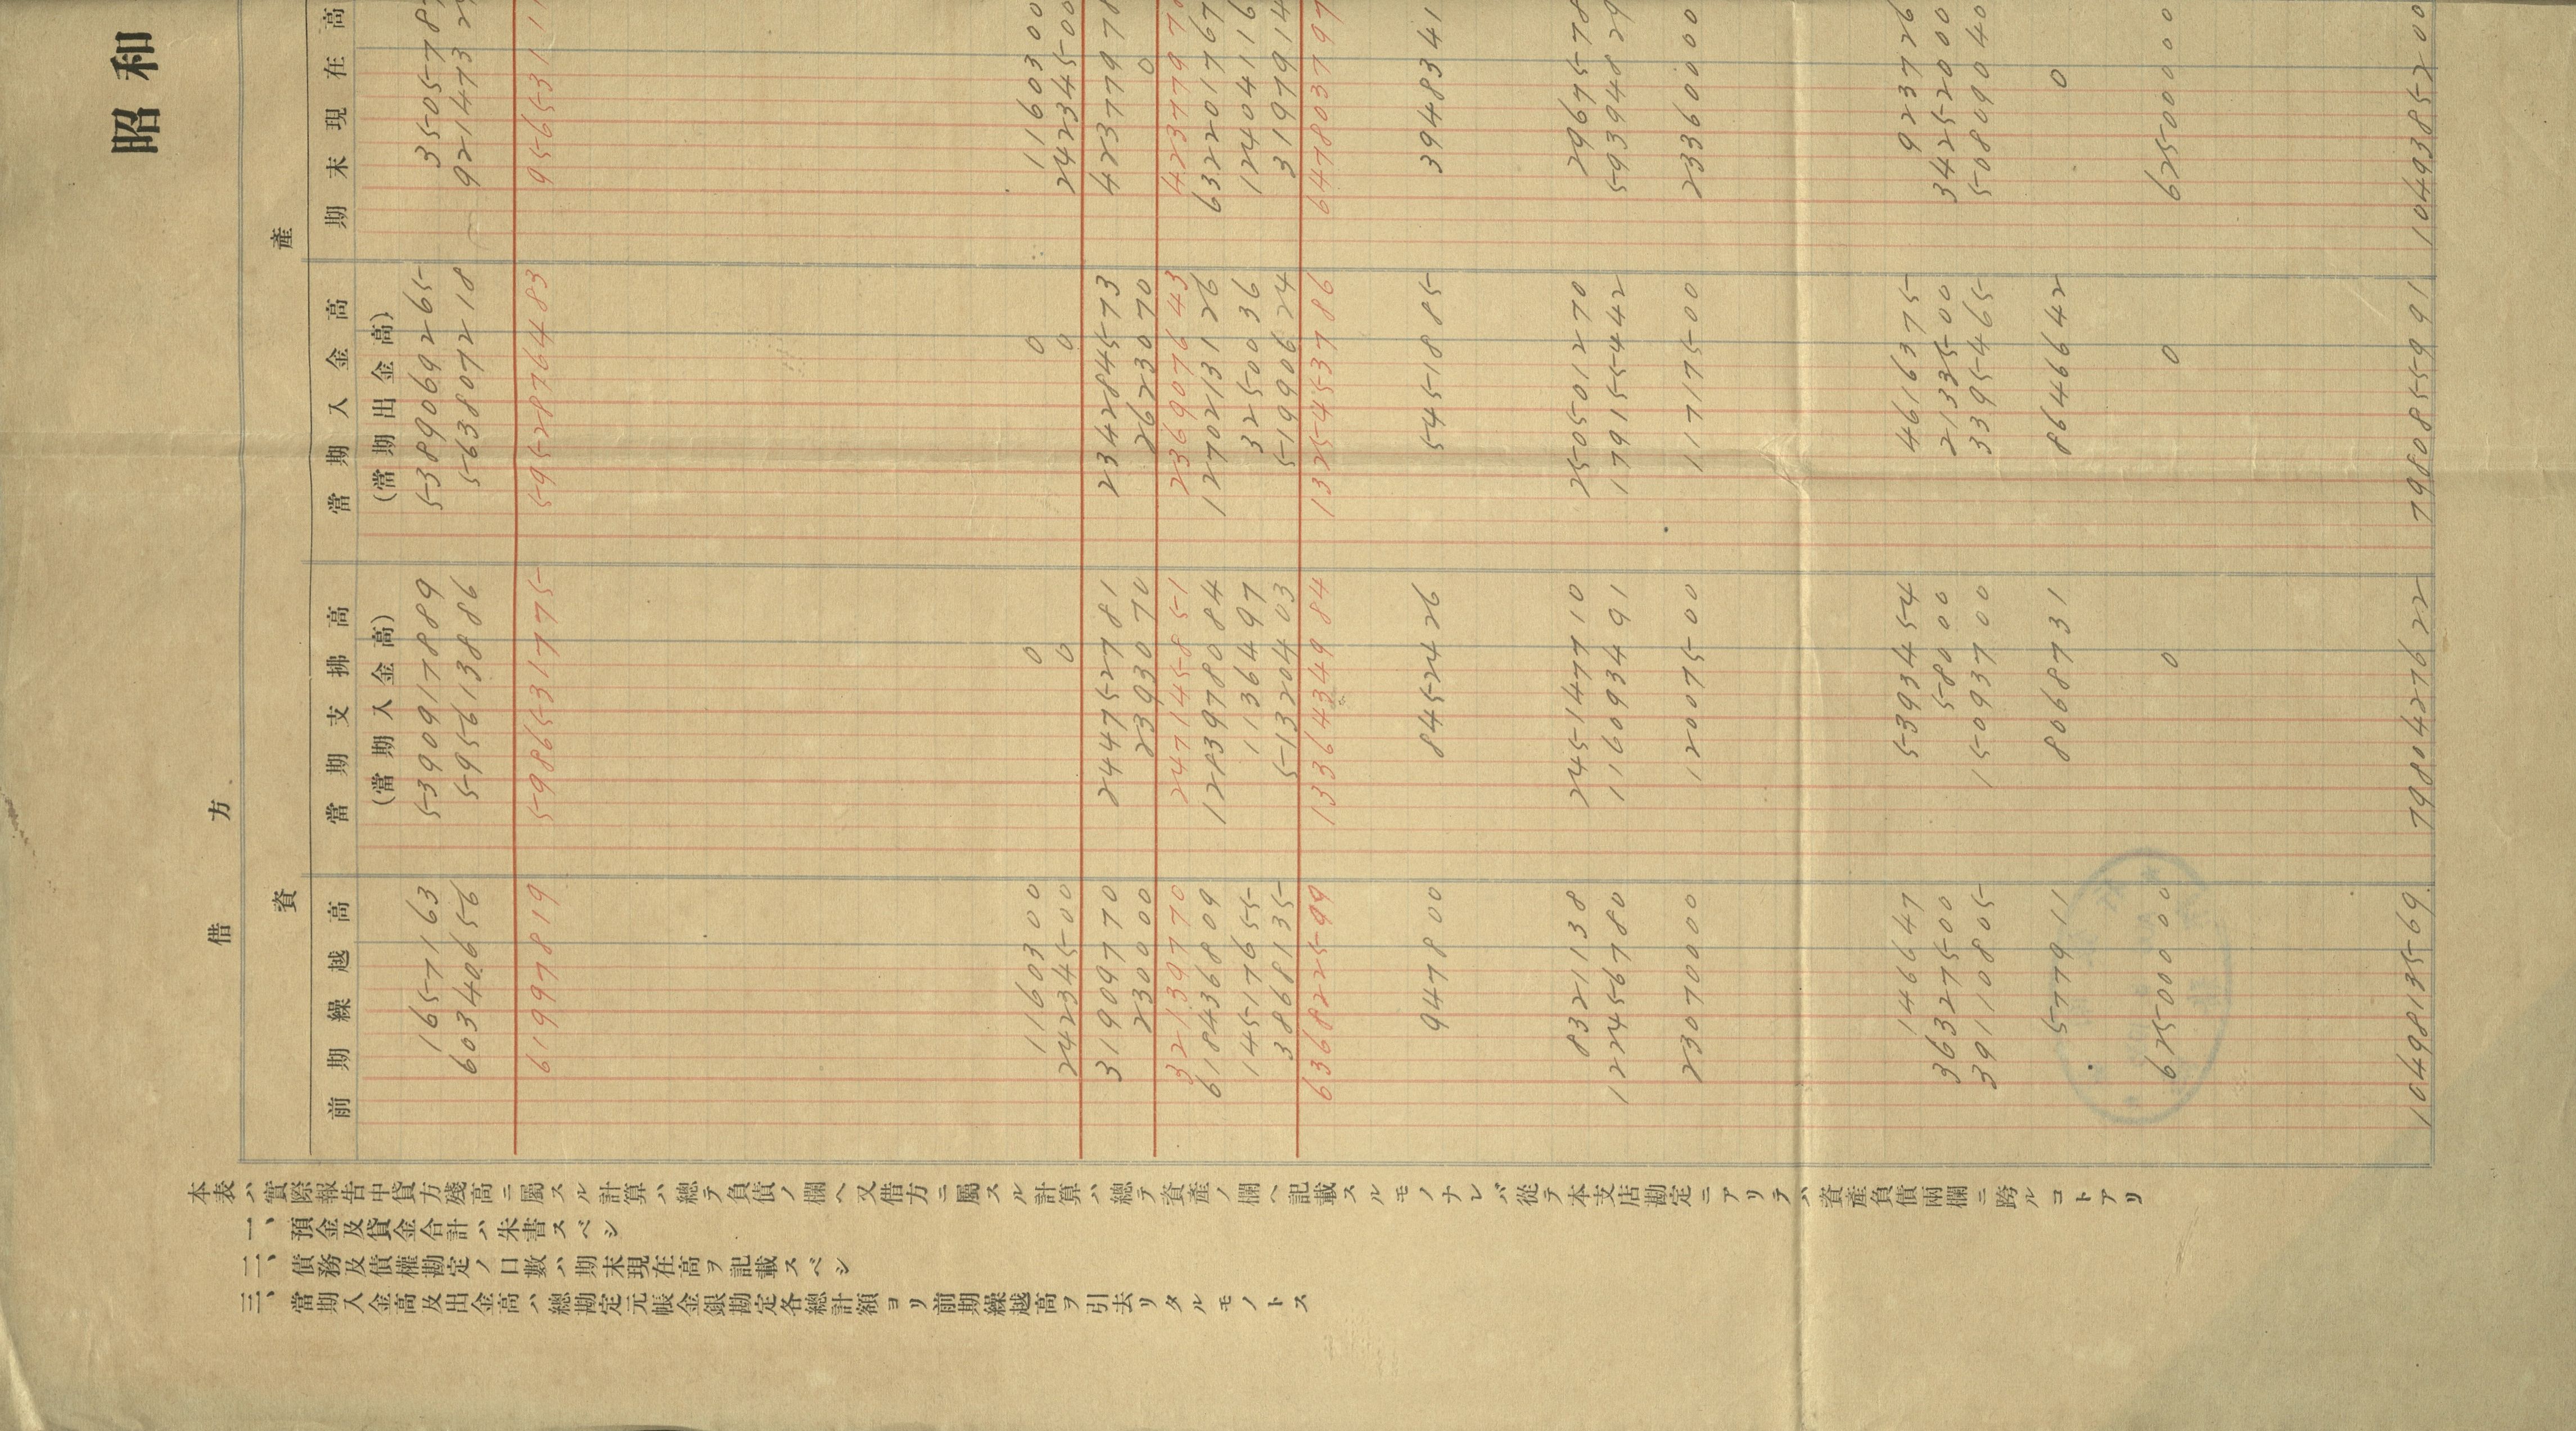 昭和
借方
資產
前期繰越高 當期支拂高 當期入金高 期末現在高
(當期入金高) (當期出金高)
16571 63 53909178 89 53890692 65 35057 8
603406 56 5956138 86 5638072 18 921473 2
619978 19 59865317 75 59528764 83 956531 1
11603 00 0 0 11603 00
242345 00 0 0 242345 00
319097 70 2447527 81 2342845 73 423779 78
2300 00 23930 70 26230 70 0
321397 70 2471458 51 2369076 43 423779 7
6184368 09 12839780 84 12702131 26 6322017 67
145176 55 11364 97 32500 36 124041 16
38681 35 513204 03 519906 24 31979 14
6368225 99 13364349 84 13254537 86 6478037 97
9478 00 84524 26 54518 85 39483 41
83211 38 2451477 10 2505012 70 29675 78
1224567 80 1160934 91 1791554 42 593948 29
230700 00 120075 00 117175 00 233600 00
1466 47 53934 54 46163 75 9237 26
363275 00 580 00 21335 00 342520 00
391108 05 150937 00 33954 65 508090 40
5779 11 80687 31 86466 42 0
625000 00 0 0 625000 00
10498135 69 79804276 22 79808559 91 10493852 00
本表ハ實際報告中貸方殘高ニ屬スル計算ハ總テ負債ノ欄ヘ又借方ニ屬スル計算ハ總テ資產ノ欄ヘ記載スルモノナレバ從テ本支店勘定ニアリテハ資產負債兩欄ニ跨ルコトアリ
一、預金及貸金合計ハ朱書スベシ
二、債務及債權勘定ノ口數ハ期末現在高ヲ記載スベシ
三、當期入金高及出金高ハ總勘定元帳金銀勘定各總計額ヨリ前期繰越高ヲ引去リタルモノトス